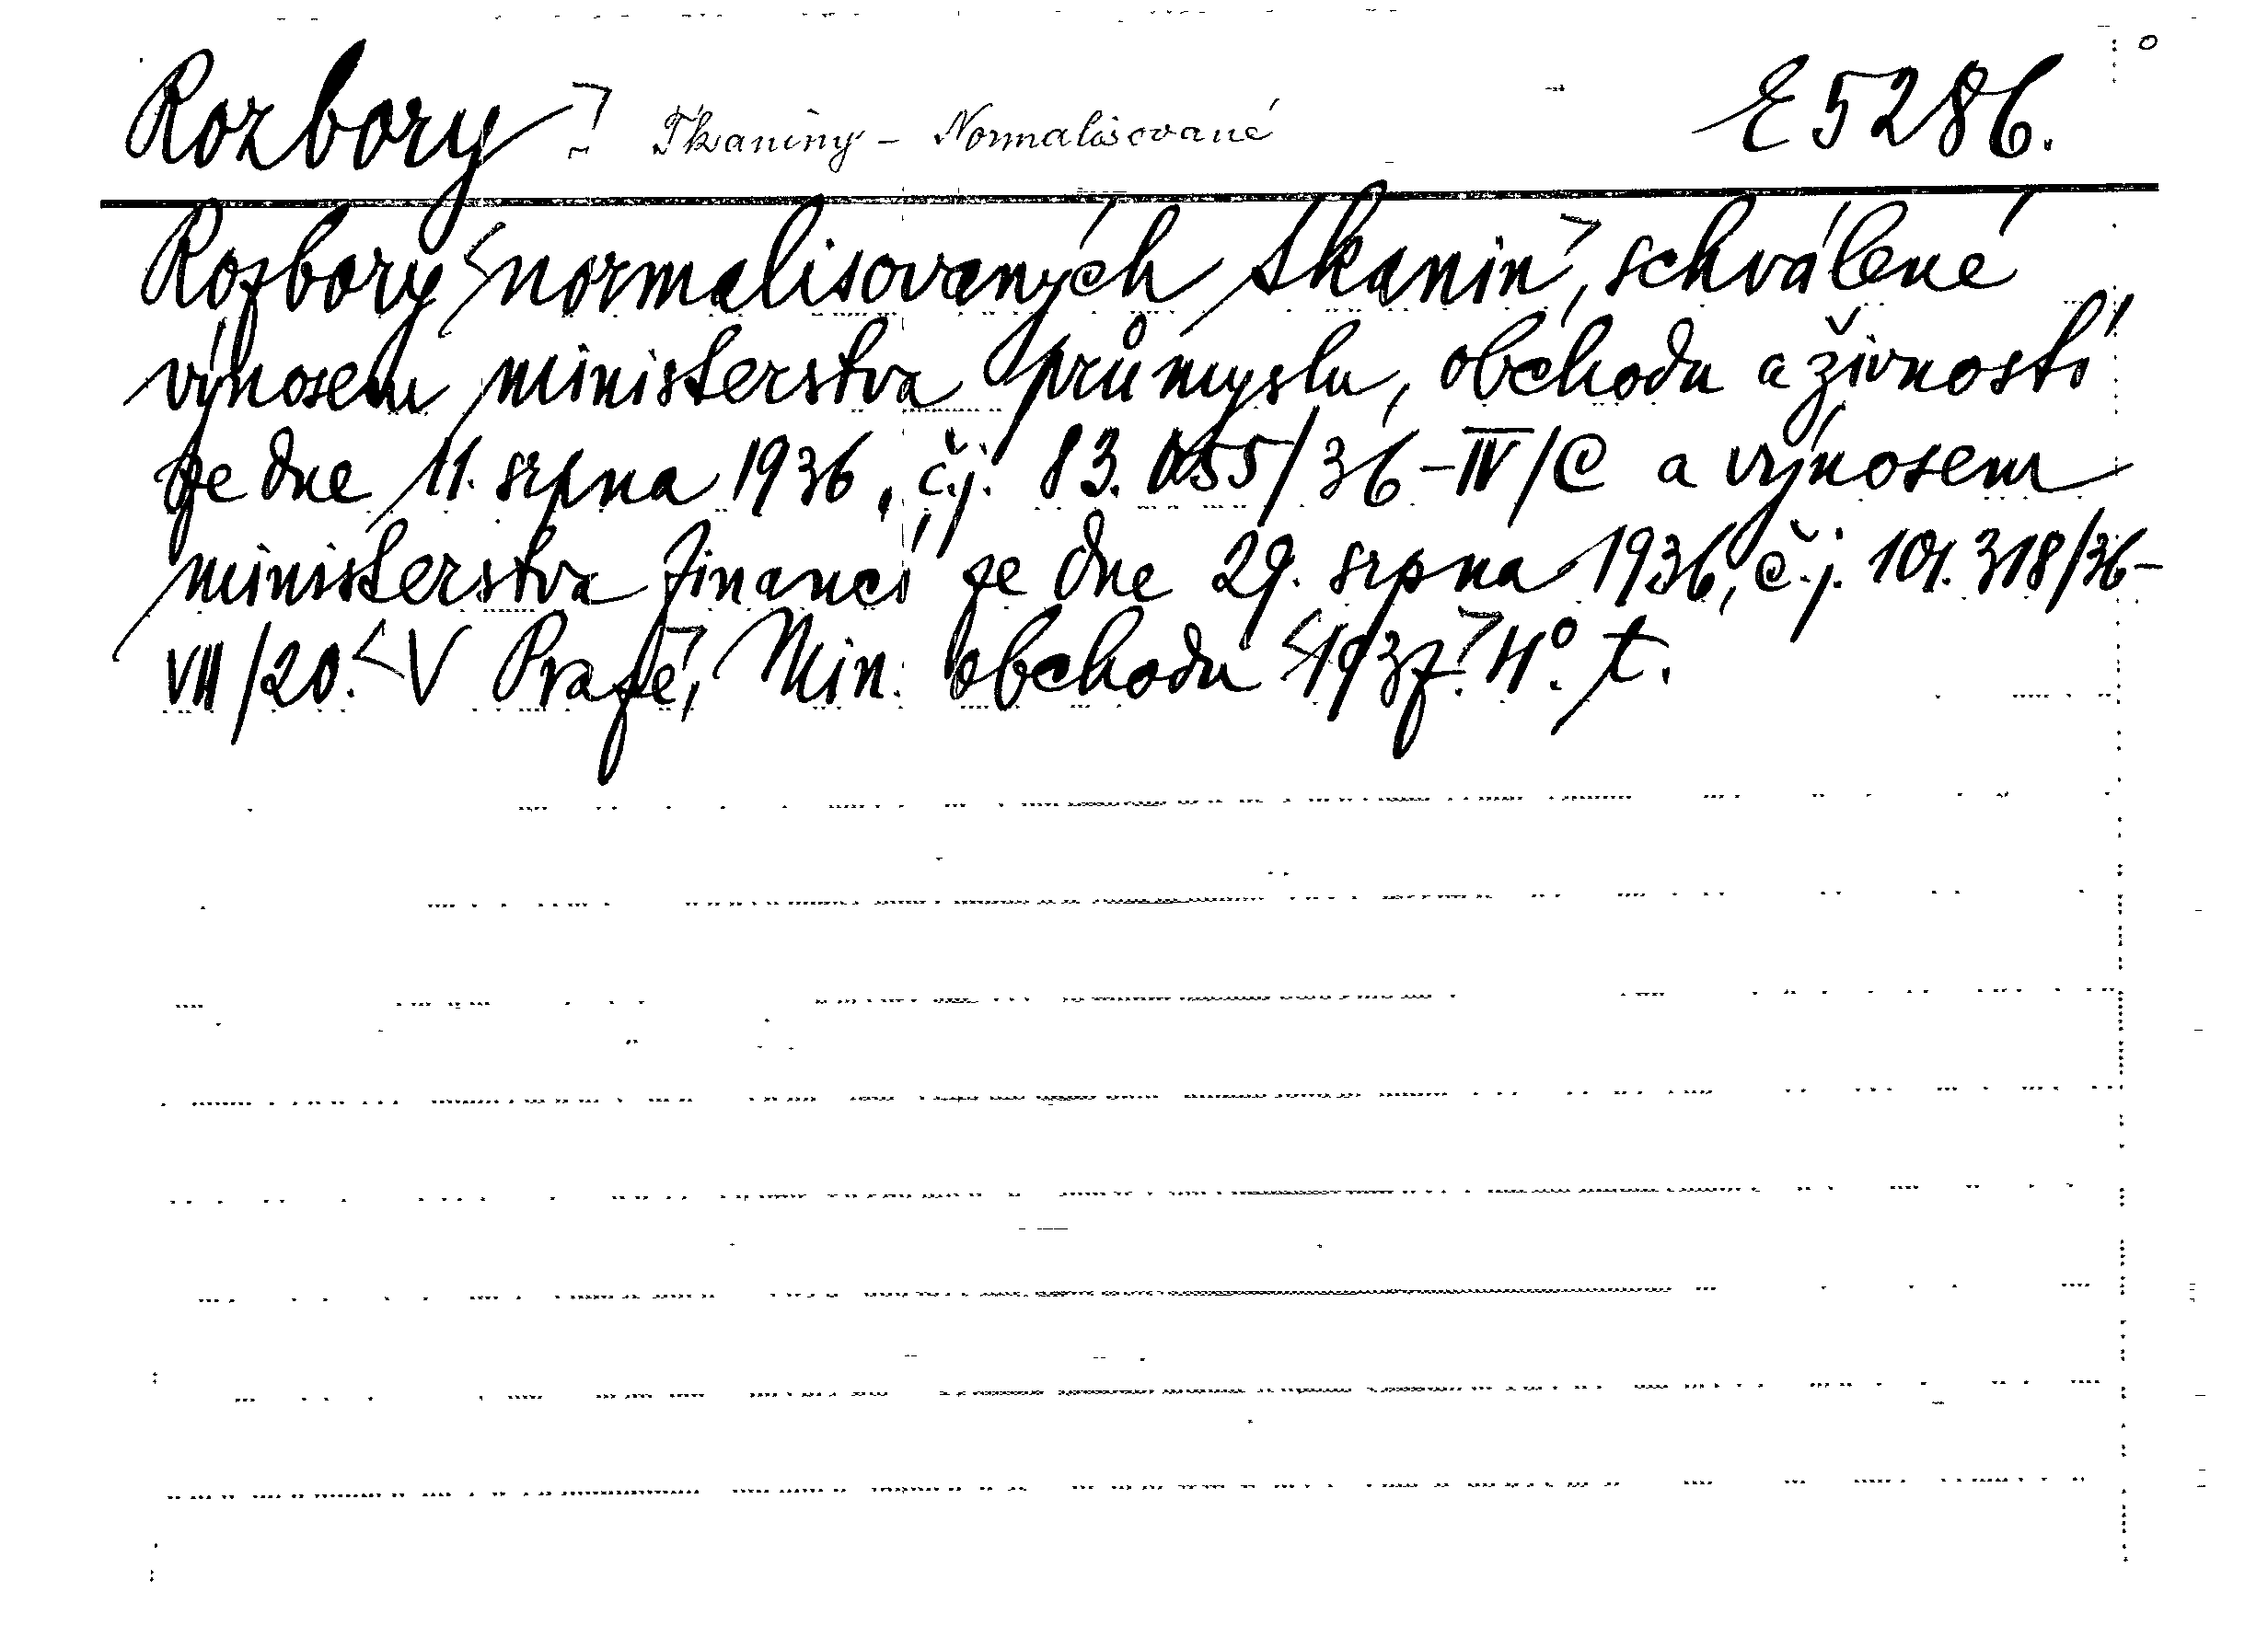 Rozbory Tkaniny – Normalisované E 5286.
Rozbory normalisovaných tkanin, schválené
výnosem ministerstva průmyslu, obchodu a živností
ze dne 11. srpna 1936, č.j. 83.055/36-IV/C a výnosem
ministerstva financí ze dne 29. srpna 1936, č.j. 101.318/36-
VII/20. V Praze, Min. obchodu 1937. 4°. t.